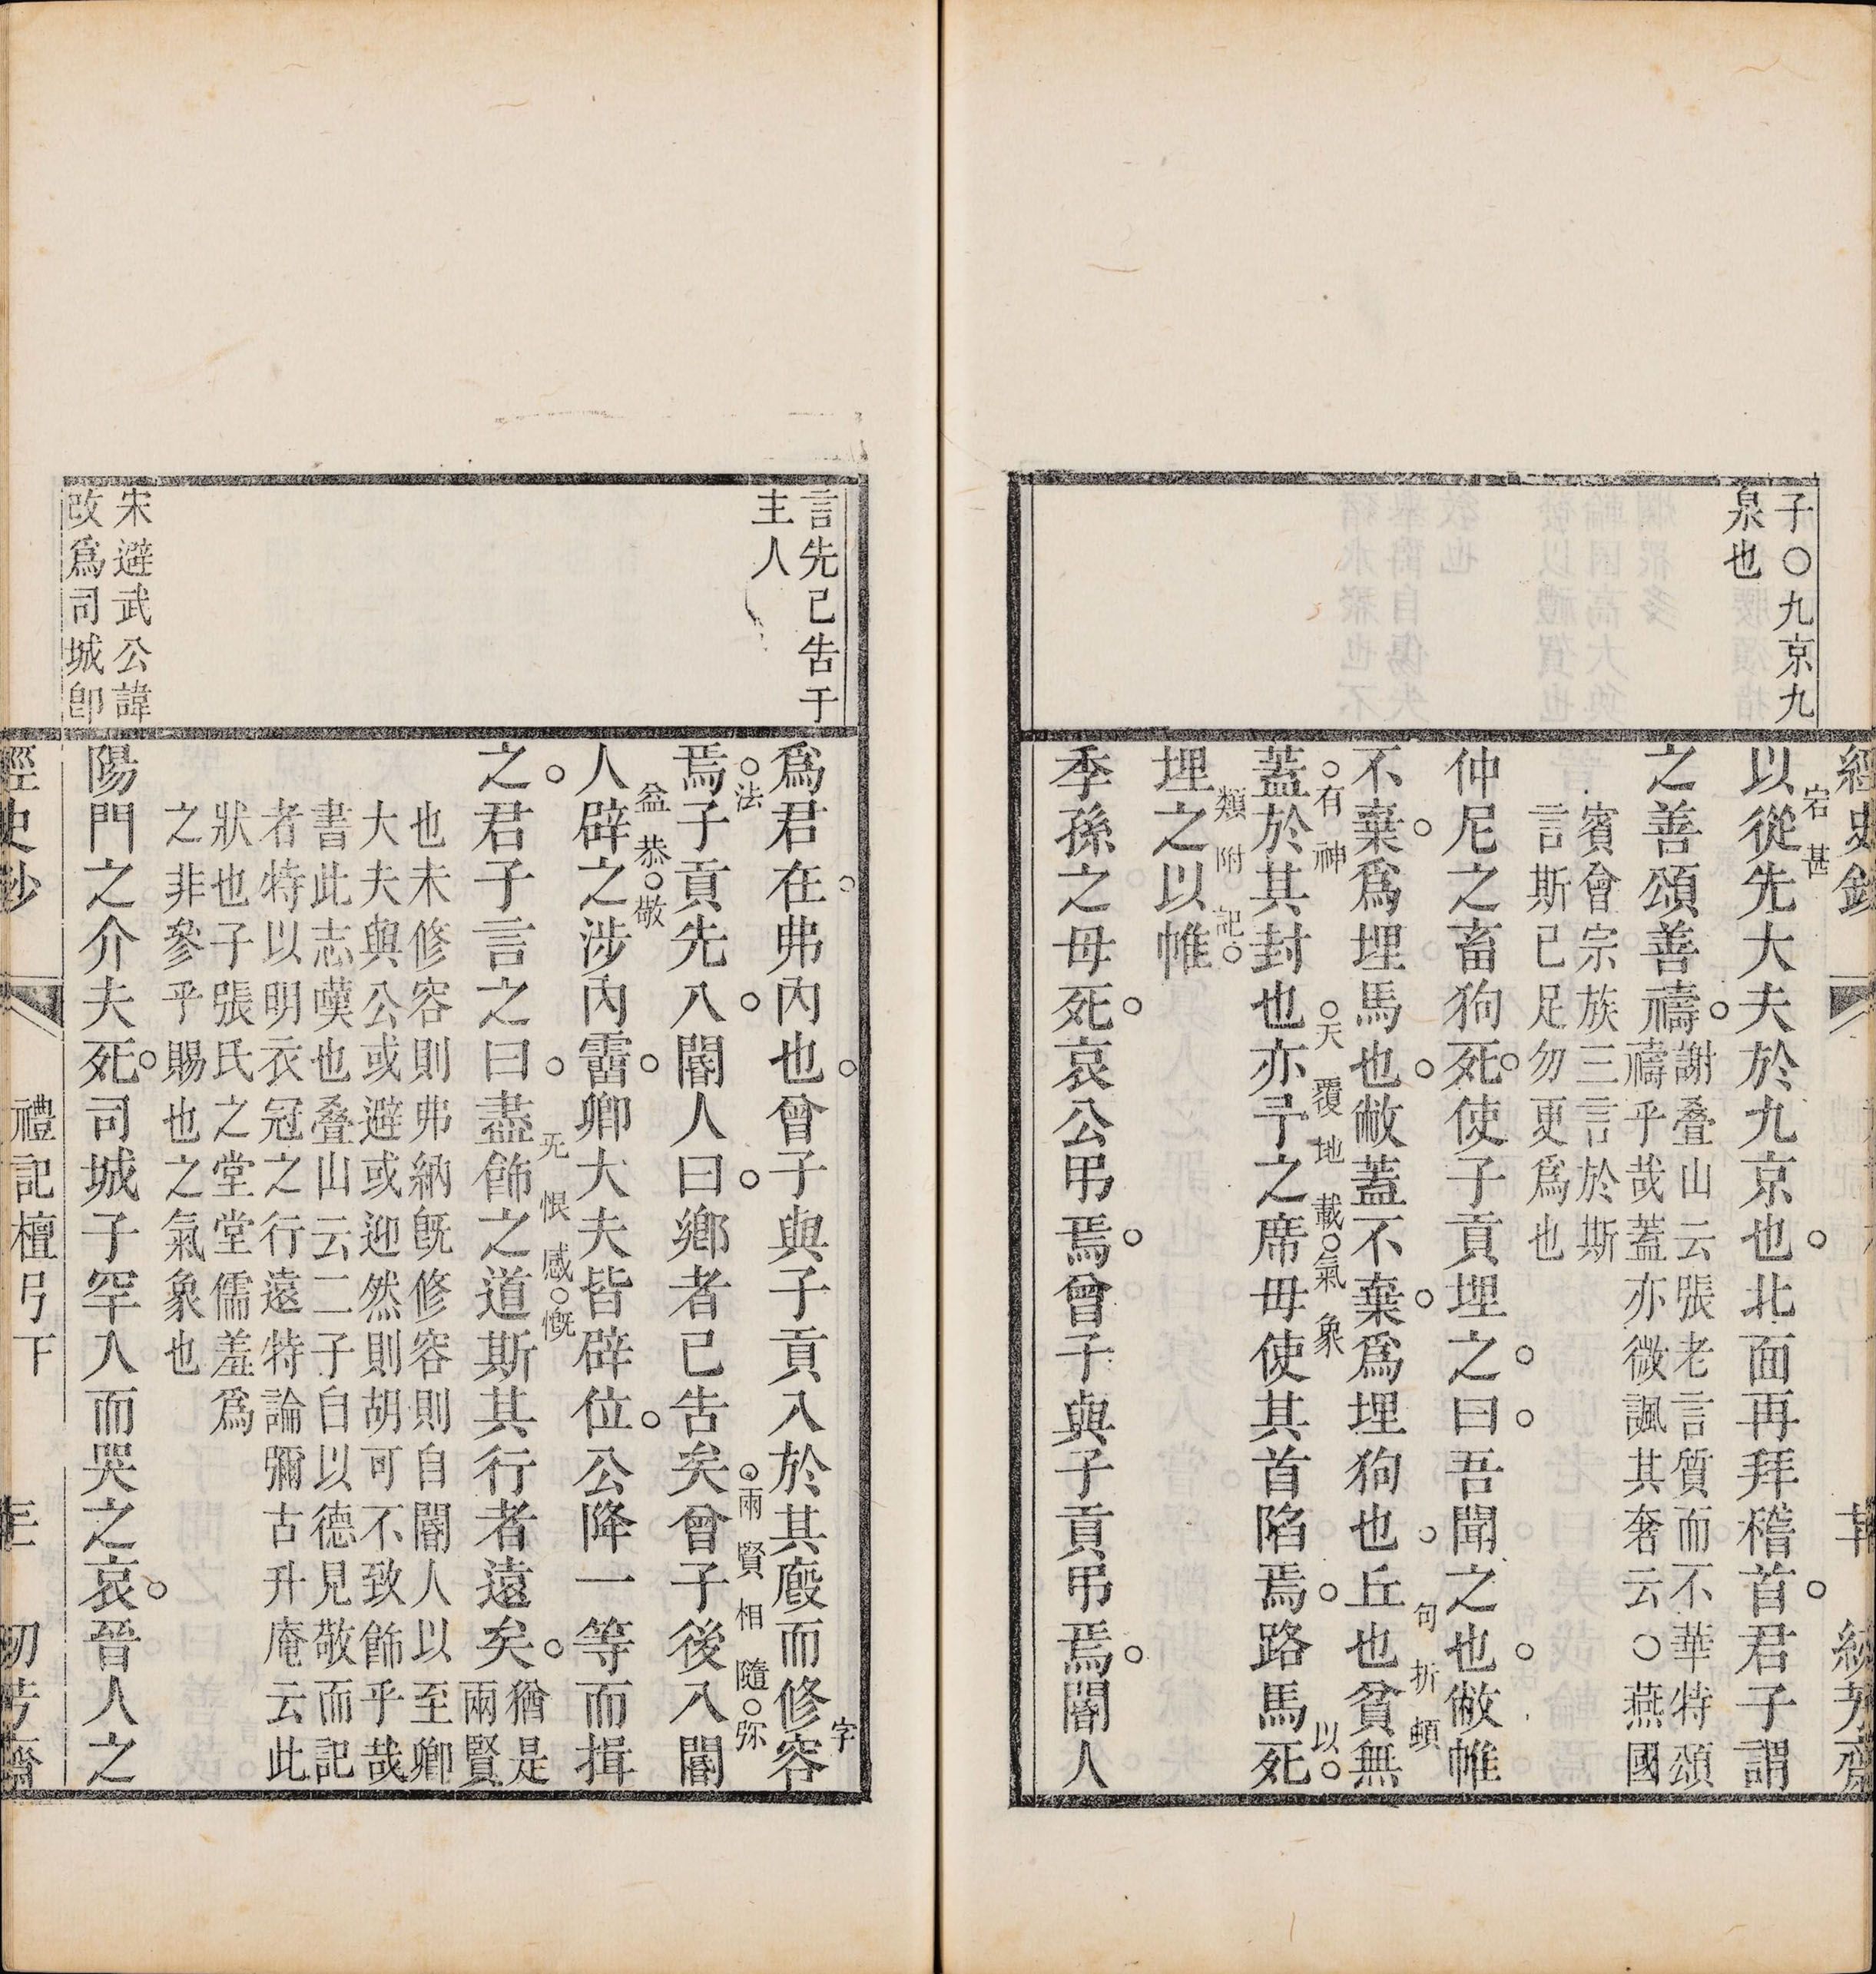 子〇九京九
泉也
以從先大夫於九京也北面再拜稽首君子謂
宕甚
之善頌善禱
謝叠山云張老言質而不華特頌
禱乎哉蓋亦微諷其奢云〇燕國
賓會宗族三言於斯
言斯已足勿更爲也
仲尼之畜狗死使子貢埋之曰吾聞之也敝帷
不棄爲埋馬也敝蓋不棄爲埋狗也丘也貧無
句折頓
蓋於其封也亦予之席毋使其首陷焉路馬死
有神
天覆地載氣象
以
埋之以帷
類附記
季孫之母死哀公弔焉曾子與子貢弔焉閽人
言先已告于
主人
爲君在弗內也曾子與子貢入於其廐而修容
字
焉子貢先入閽人曰鄉者已告矣曾子後入閽
法
兩賢相隨弥
人辟之涉內霤卿大夫皆辟位公降一等而揖
益恭敬
之君子言之曰盡飾之道斯其行者遠矣
旡恨感慨
猶是
兩賢
也未修容則弗納旣修容則自閽人以至卿
大夫與公或避或迎然則胡可不致飾乎哉
書此志嘆也叠山云二子自以德見敬而記
者特以明衣冠之行遠特論彌古升庵云此
狀也子張氏之堂堂儒羞爲
之非參乎賜也之氣象也
宋避武公諱
改爲司城卽
陽門之介夫死司城子罕入而哭之哀晉人之
經史鈔
禮記檀弓下